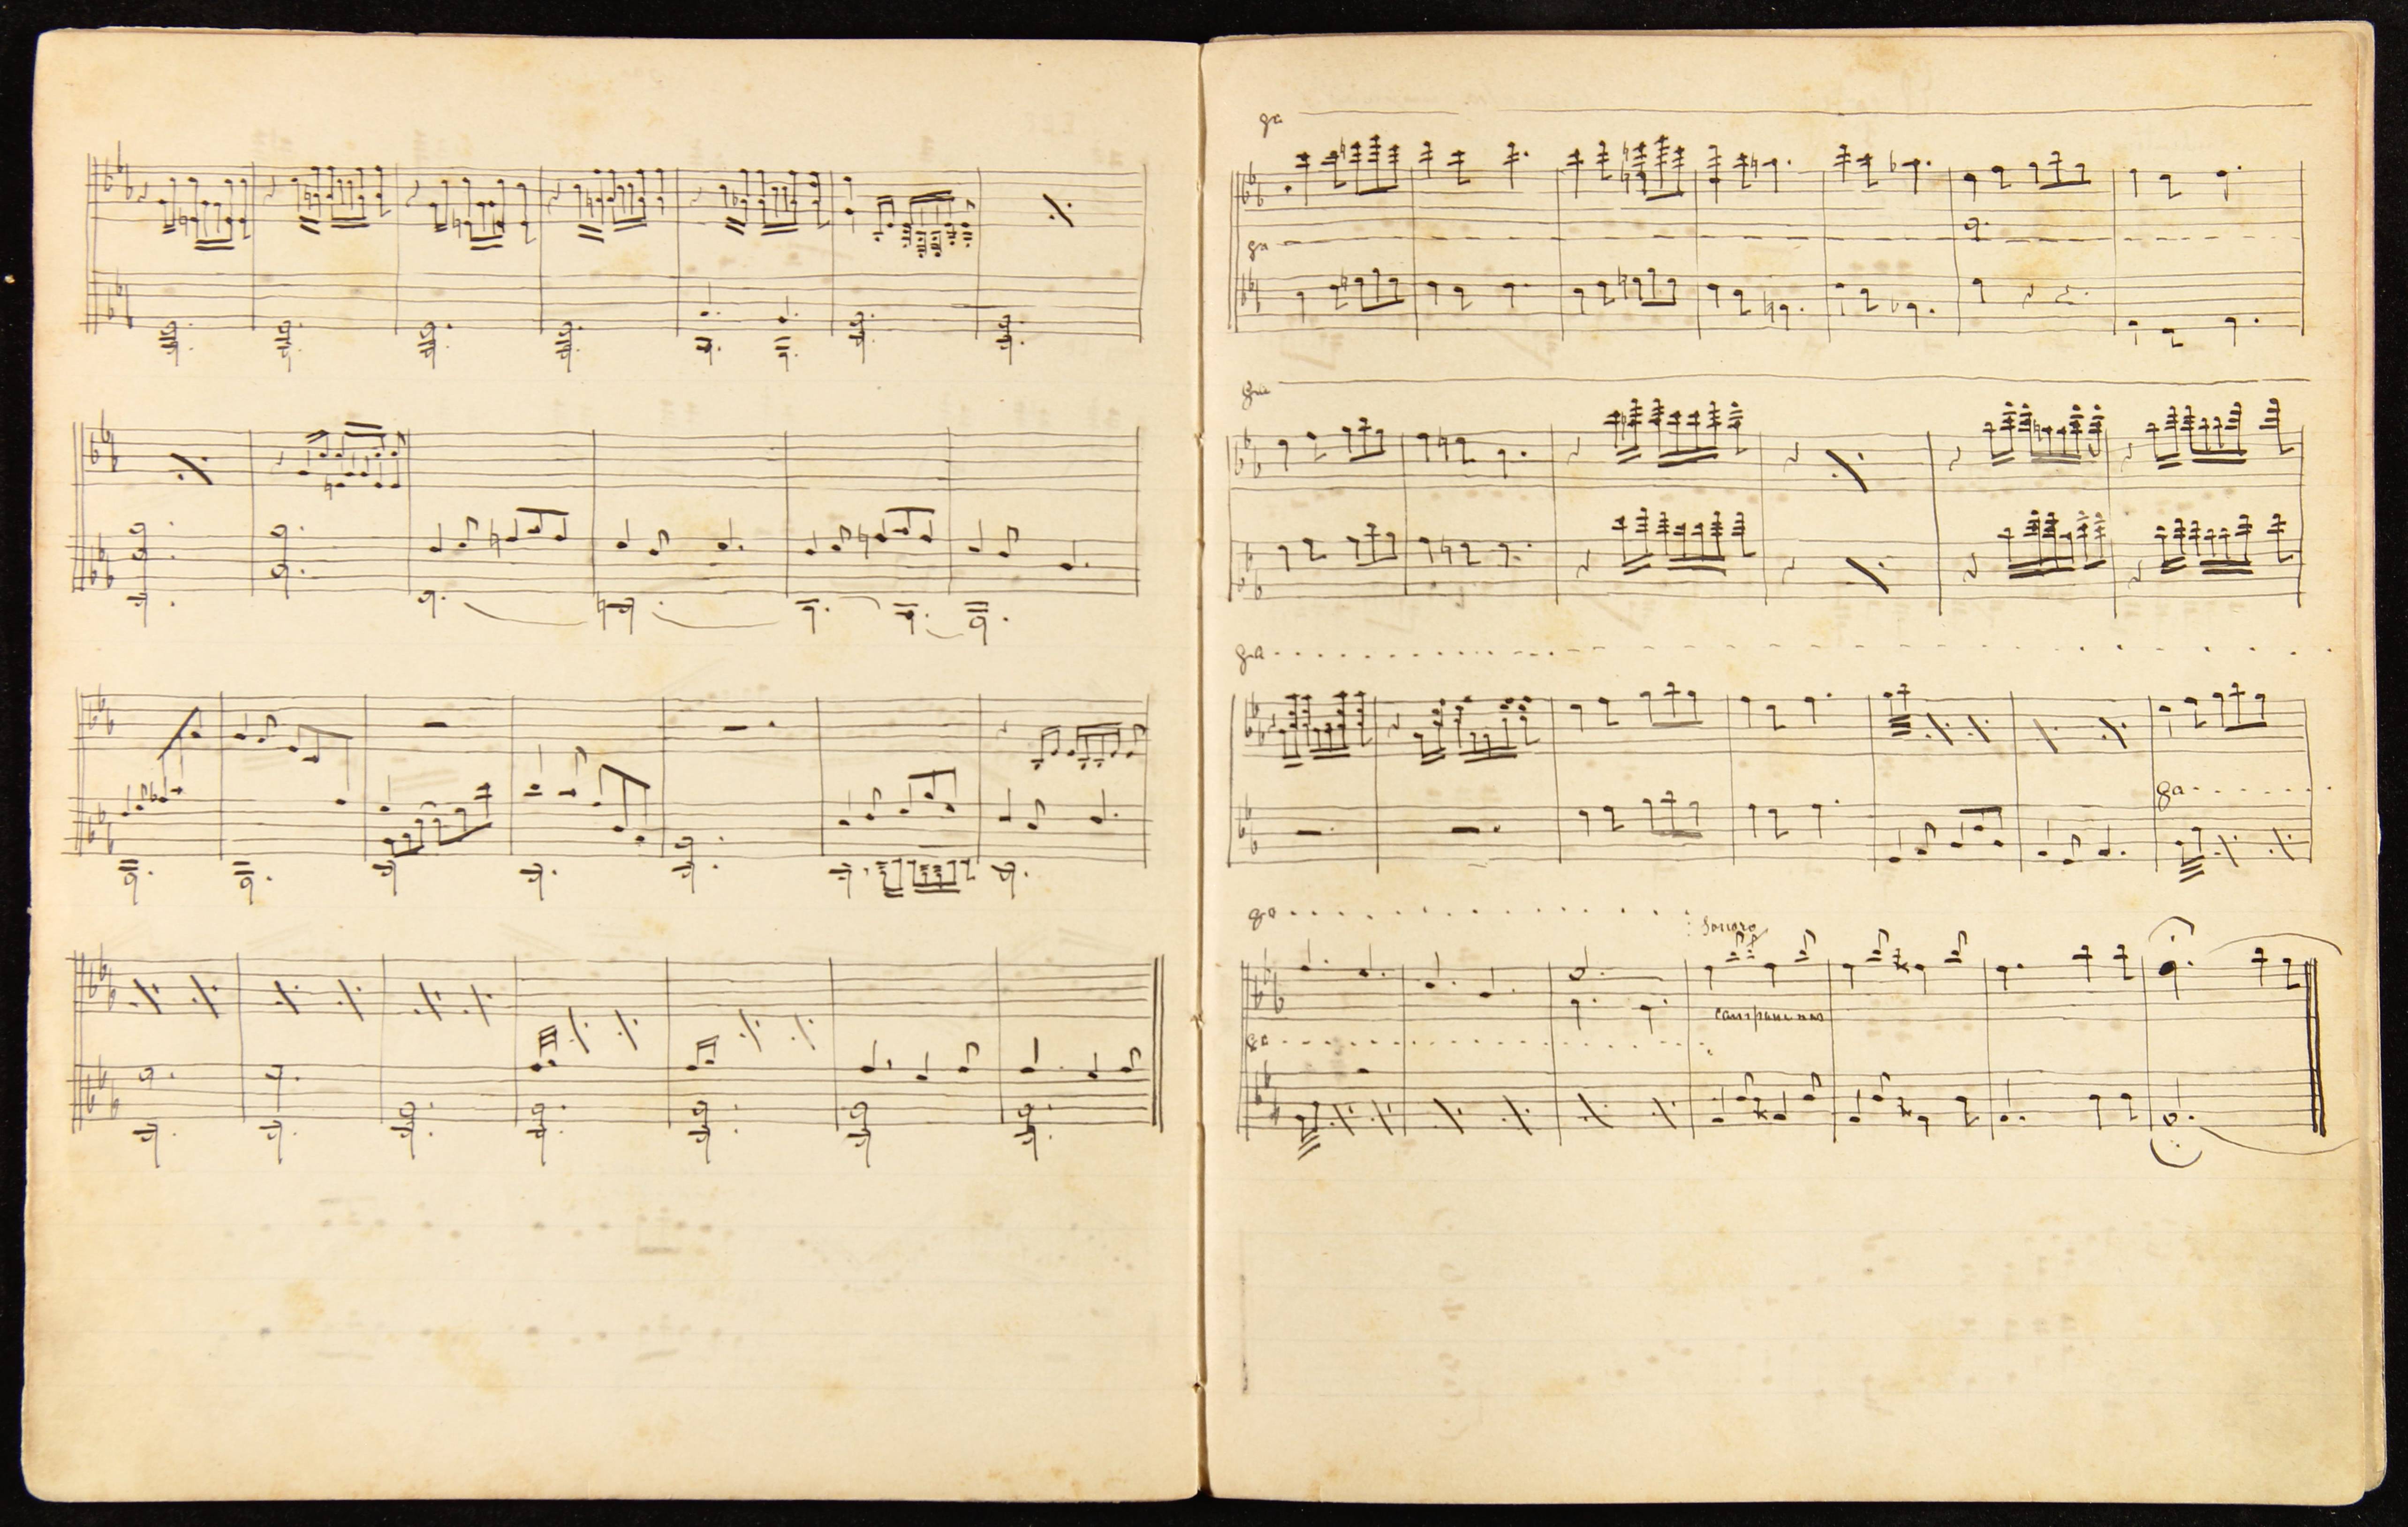 8a
8a
8va
8a
8a
8a
Sonoro
campanas
8a